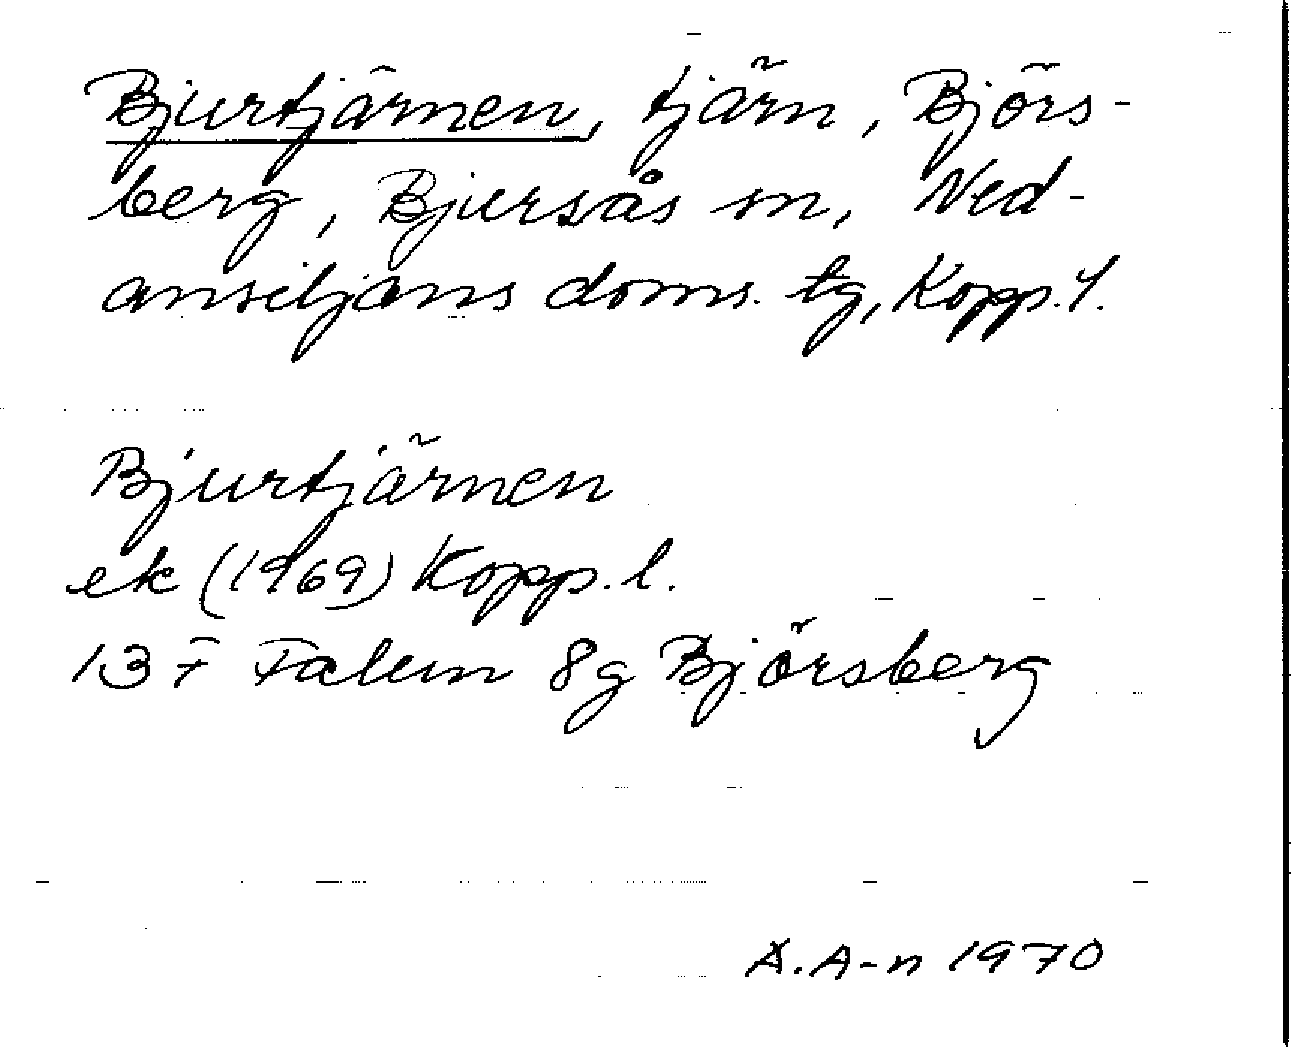 Bjurtjärnen, tjärn, Björs-
berg, Bjursås sn, Ned-
ansiljans doms. tg, Kopp. l.
Bjurtjärnen
ek (1969) Kopp. l.
13 F Falun 8g Björsberg
A. A-n 1970